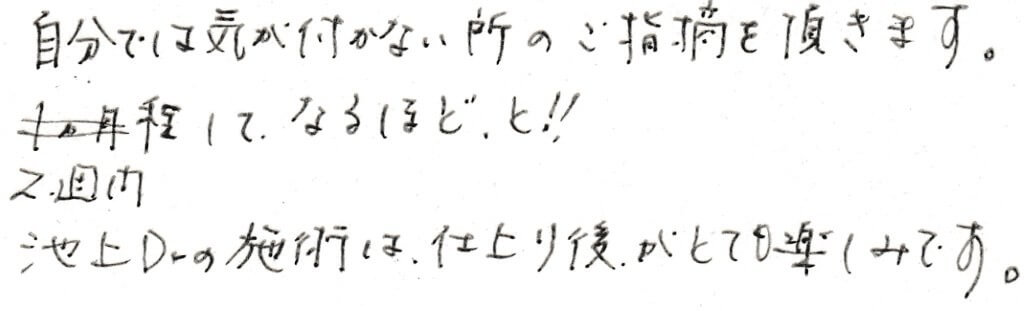 自分では気が付かない所のご指摘を頂きます。
1ヶ月程して、なるほど、と!!
2週間
池上Drの施術は、仕上り後、がとても楽しみです。